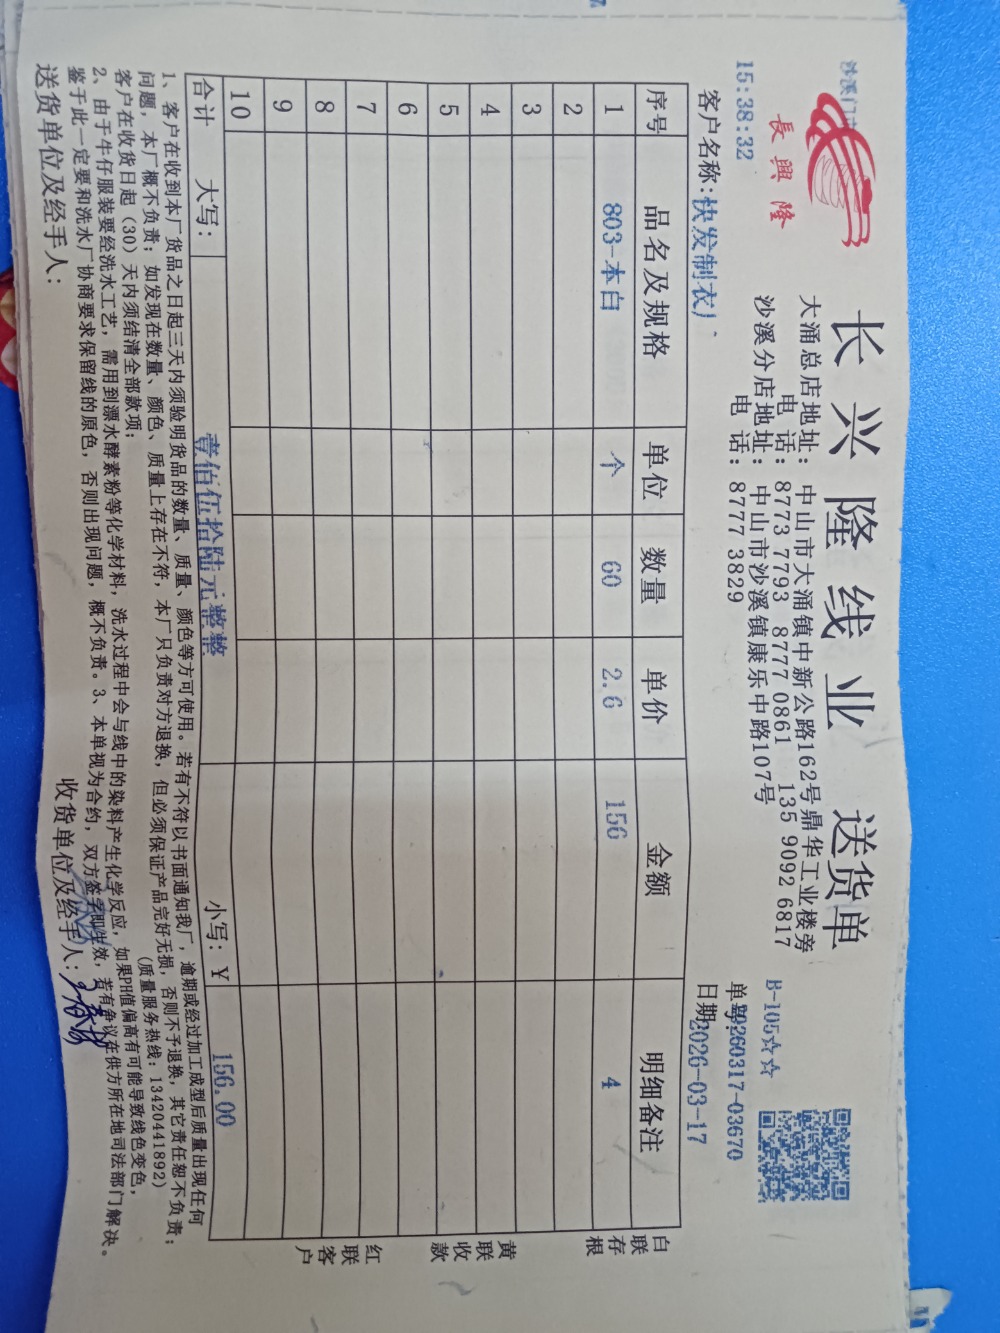 长兴隆线业 送货单
長興隆
沙溪门
15:38:32
大涌总店地址：中山市大涌镇中新公路162号鼎华工业楼旁
电 话：8773 7793 8777 0861 135 9092 6817
沙溪分店地址：中山市沙溪镇康乐中路107号
电 话：8777 3829
B-105☆☆
单号:20260317-03670
客户名称:快发制衣厂
日期:2026-03-17
序号 品名及规格 单位 数量 单价 金额 明细备注
1 803-本白 个 60 2.6 156 4
2
3
4
5
6
7
8
9
10
合计 大写： 壹佰伍拾陆元整整 小写：￥ 156.00
白联存根
黄联收款
红联客户
1、客户在收到本厂货品之日起三天内须验明货品的数量、质量、颜色等方可使用。若有不符以书面通知我厂，逾期或经过加工成型后质量出现任何
问题，本厂概不负责；如发现在数量、颜色、质量上存在不符，本厂只负责对方退换，但必须保证产品完好无损，否则不予退换，其它责任恕不负责；
客户在收货日起（30）天内须结清全部款项； （质量服务热线：13420441892）
2、由于牛仔服装要经洗水工艺，需用到漂水酵素粉等化学材料，洗水过程中会与线中的染料产生化学反应，如果PH值偏高有可能导致线色变色，
鉴于此一定要和洗水厂协商要求保留线的原色，否则出现问题，概不负责。3、本单视为合约，双方签字即生效，若有争议在供方所在地司法部门解决。
送货单位及经手人： 收货单位及经手人：